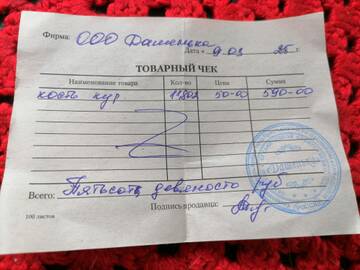 Фирма: ООО Дашенька
Дата « 9.03 25 г.
ТОВАРНЫЙ ЧЕК
Наименование товара Кол-во Цена Сумма
кость кур 50-00 590-00
Всего: Пятьсот девяносто руб
Подпись продавца:
100 листов